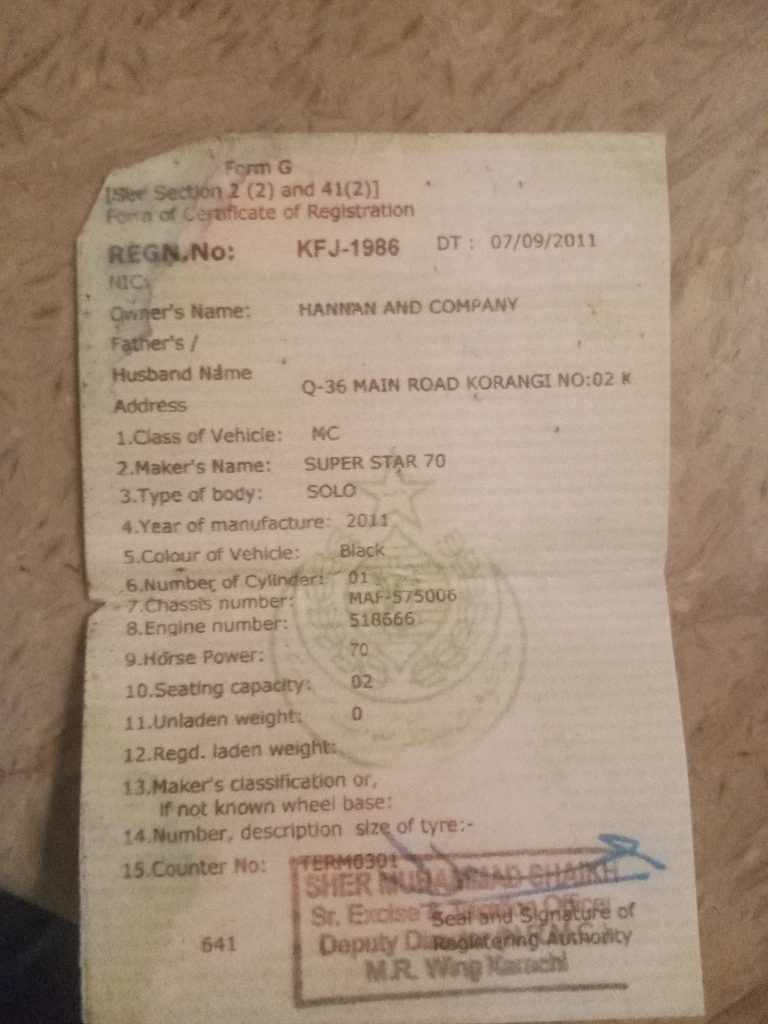 Form G
[See Section 2 (2) and 41(2)]
Form of Certificate of Registration
REGN.No: KFJ-1986 DT : 07/09/2011
NIC:
Owner's Name: HANNAN AND COMPANY
Father's /
Husband Name
Address Q-36 MAIN ROAD KORANGI NO:02 K
1.Class of Vehicle: MC
2.Maker's Name: SUPER STAR 70
3.Type of body: SOLO
4.Year of manufacture: 2011
5.Colour of Vehicle: Black
6.Number of Cylinder: 01
7.Chassis number: MAF-575006
8.Engine number: 518666
9.Horse Power: 70
10.Seating capacity: 02
11.Unladen weight: 0
12.Regd. laden weight:
13.Maker's classification or,
if not known wheel base:
14.Number, description size of tyre:-
15.Counter No: TERM0301
SHER MUHAMMAD SHAIKH
Sr. Excise & Taxation Officer
Seal and Signature of
Deputy
Registering Authority
641
M.R. Wing Karachi